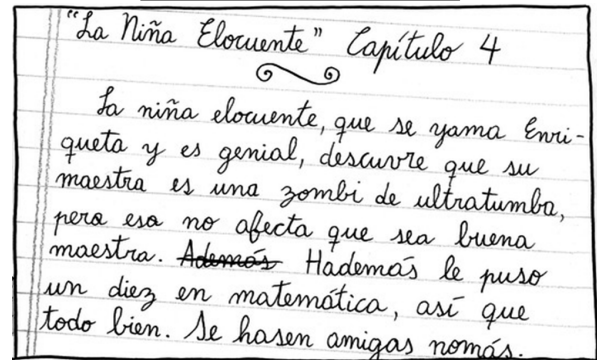 "La Niña Elocuente" Capítulo 4
La niña elocuente, que se yama Enri-
queta y es genial, descuvre que su
maestra es una zombi de ultratumba,
pero eso no afecta que sea buena
maestra. Además Hademás le puso
un diez en matemática, así que
todo bien. Se hasen amigas nomás.